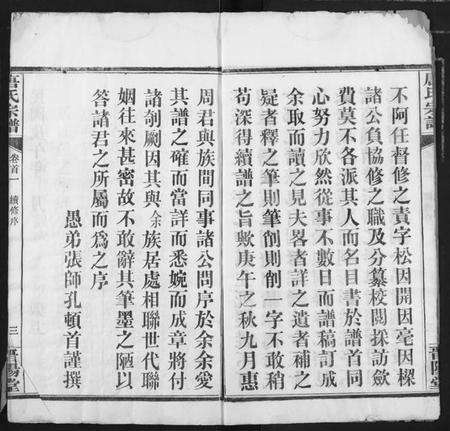 不阿任督修之責字松因開因亳因樑
諸公負協修之職及分纂校閱採訪歛
費莫不各派其人而名目書於譜首同
心努力欣然從事不數日而譜稿訂成
余取而讀之見夫畧者詳之遺者補之
疑者釋之筆則筆削則削一字不敢稍
苟深得續譜之旨歟庚午之秋九月惠
周君與族間同事諸公問序於余余愛
其譜之確而當詳而悉婉而成章將付
諸剞劂因其與余族居處相聯世代聯
姻往來甚密故不敢辭其筆墨之陋以
答諸君之所屬而為之序
愚弟張師孔頓首謹撰
唐氏宗譜
卷首一 續修序
三
晋陽堂